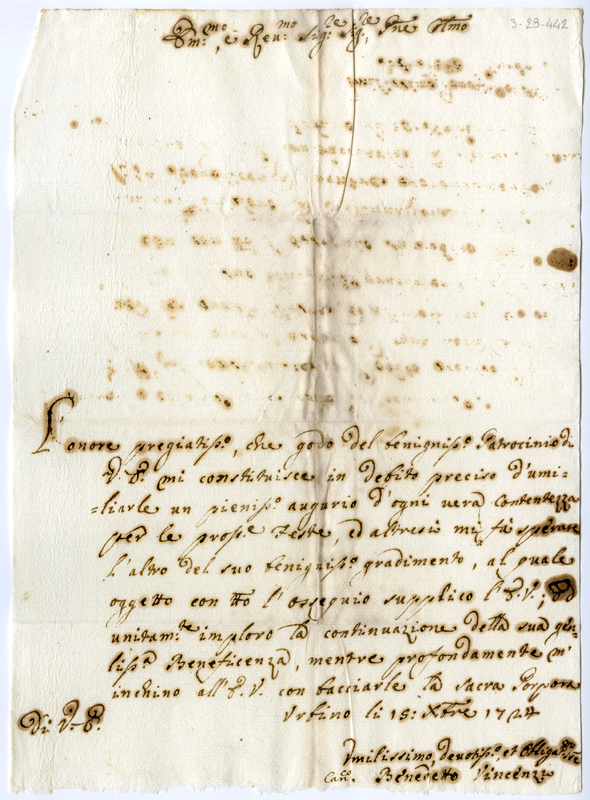 3-23-442
Em:mo, e Reu:mo Sig:re Sig:re, Pne Colmo
L'onore pregiatiss:o, che godo del benigniss:o Patrocinio di
V. E. mi constituisce in debito preciso d'umi=
=liarle un pieniss:o augurio d'ogni vera contentezza
per le pross:e Feste, ed altresì mi fà sperare
l'altro del suo benigniss:o gradimento, al quale
oggetto con tto l'ossequio supplico l'E. V.; ed
unitam:te imploro la continuazione della sua gen-
liss:a Beneficenza, mentre profondamente m'
inchino all'E. V. con bacciarle la sacra Porpora
Urbino li 15: Xbre 1724
Di V. E.
Umilissimo, devotiss:o, et Obligat:mo
Can:o Benedetto Vincenzi